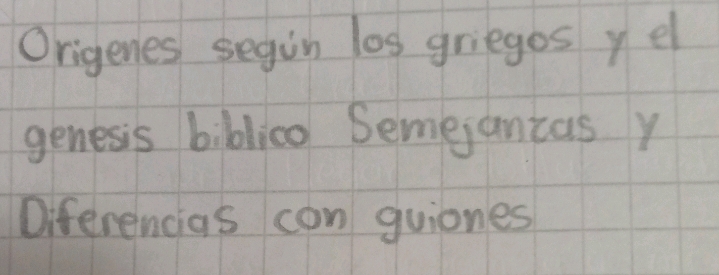 Origenes según los griegos y el
genesis biblico Semejanzas y
Diferencias con guiones